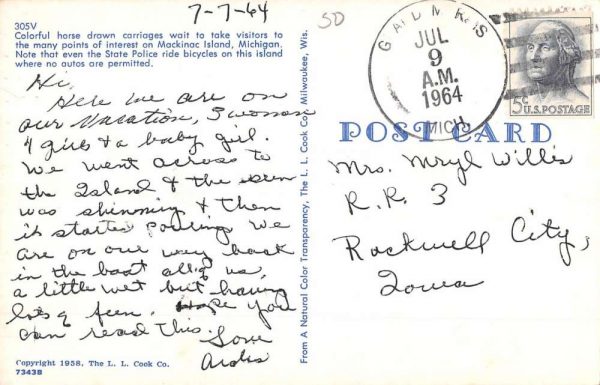 7-7-64
SD
305V
Colorful horse drawn carriages wait to take visitors to
the many points of interest on Mackinac Island, Michigan.
Note that even the State Police ride bicycles on this island
where no autos are permitted.
Hi,
Here we are on
our vacation, 3 women
4 girls & a baby girl.
We went across to
the Island & the sun
was shinning & then
it started pouring. We
are on our way back
in the boat all of us,
a little wet but having
lots of fun. Hope you
can read this.
Love
Ardis
Copyright 1958, The L. L. Cook Co.
73438
From A Natural Color Transparency, The L. L. Cook Co., Milwaukee, Wis.
JUL
9
A.M.
1964
MICH
5c U.S. POSTAGE
POST CARD
Mrs. Meryl Willis
R.R. 3
Rockwell City,
Iowa